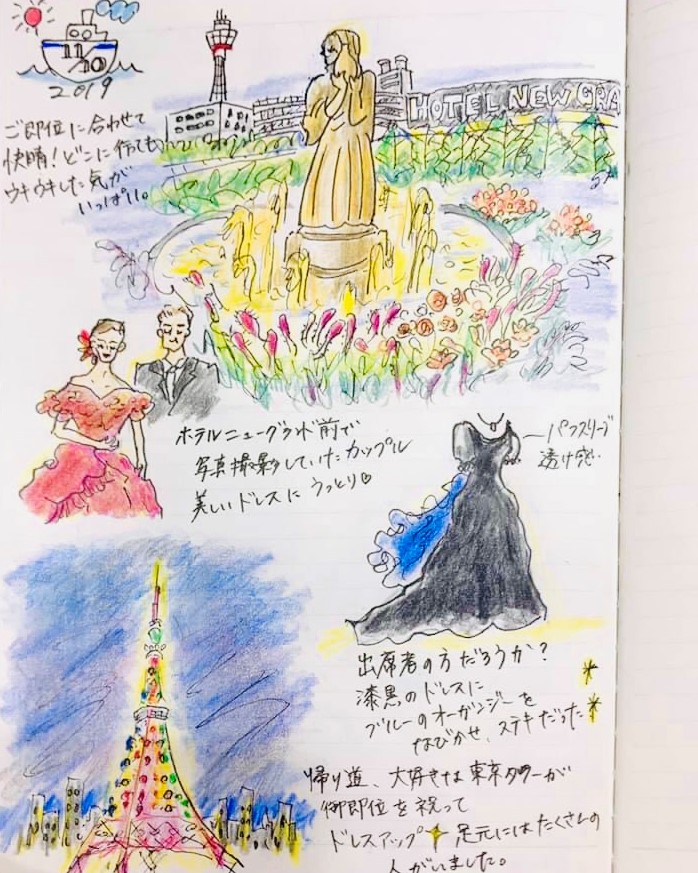 11/10
2019
ご即位に合わせて
快晴!どこに行っても
ウキウキした気が
いっぱい。
HOTEL NEW GRA
ホテルニューグランド前で
写真撮影していたカップル
美しいドレスにうっとり♡
パフスリーブ
透け感
出席者の方だろうか?
漆黒のドレスに
ブルーのオーガンジーを
なびかせ、ステキだった
帰り道、大好きな東京タワーが
御即位を祝って
ドレスアップ 足元にはたくさんの
人がいました。